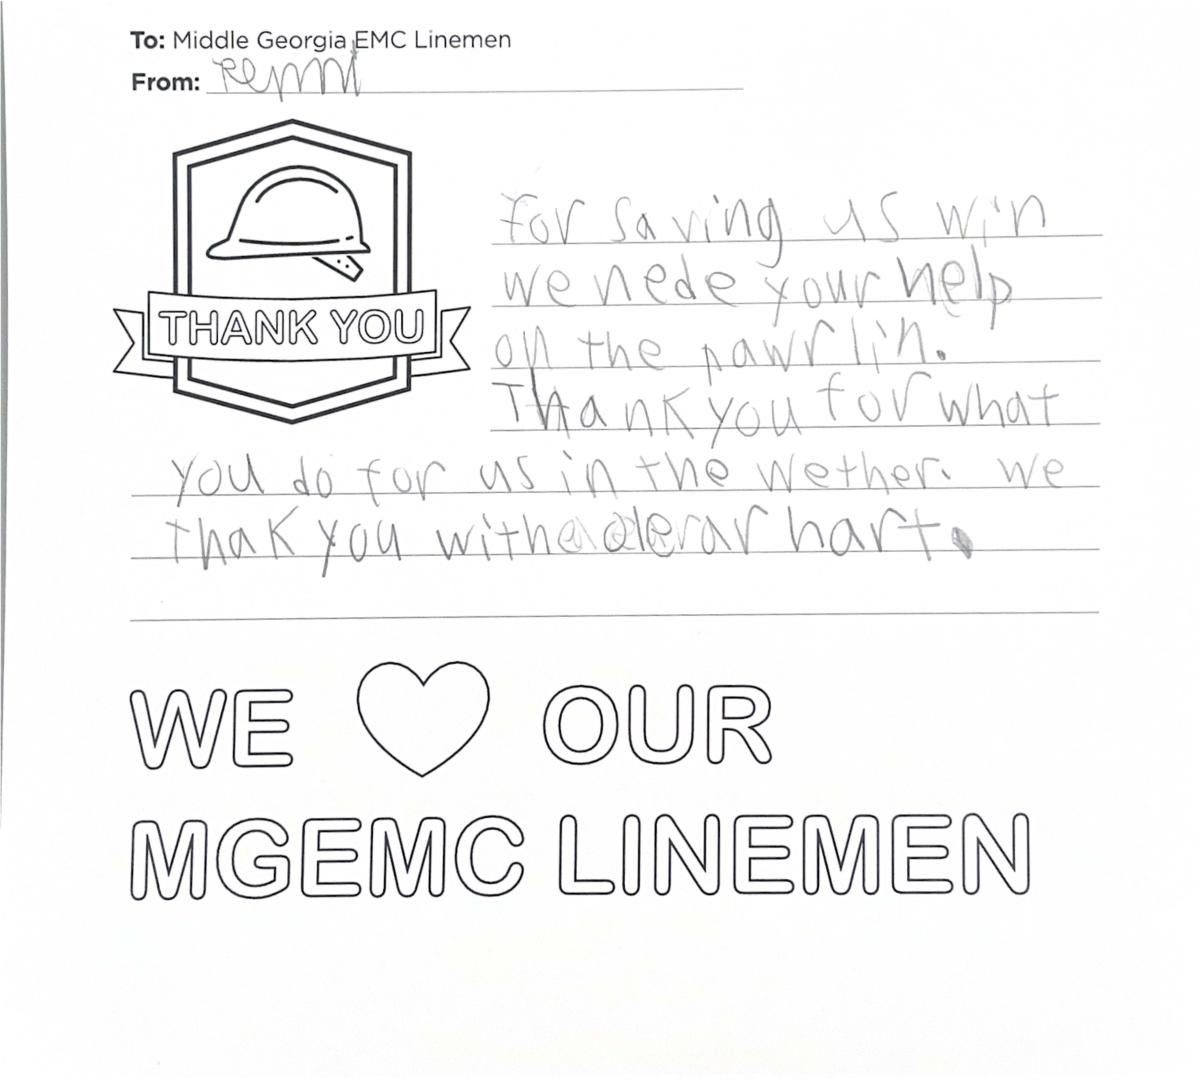 To: Middle Georgia EMC Linemen
From:
THANK YOU
For saving us win
we nede your help
on the pawr lin.
Thank you for what
you do for us in the wether. we
thak you with hart.
WE OUR
MGEMC LINEMEN